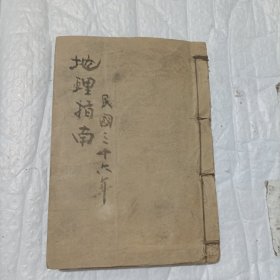 地理指南
民國三十六年